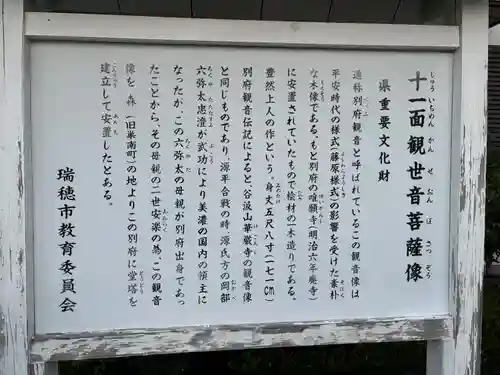 十一面観世音菩薩像
じゅういちめんかんぜおんぼさつぞう
県重要文化財
通称別府観音と呼ばれているこの観音像は
平安時代の様式(藤原様式)の影響を受けた素朴
な木像である。もと別府の喰願寺(明治六年廃寺)
に安置されていたもので桧材の一木造りである。
豊然上人の作という。身丈五尺八寸(一七一cm)
別府観音伝記によると、谷汲山華厳寺の観音像
と同じものであり、源平合戦の時、源氏方の岡部
六弥太忠澄が武功により美濃の国内の領主に
なったが、この六弥太の母親が別府出身であっ
たことから、その母親の二世安楽の為、この観音
像を森(旧巣南町)の地よりこの別府に堂塔を
建立して安置したとある。
瑞穂市教育委員会